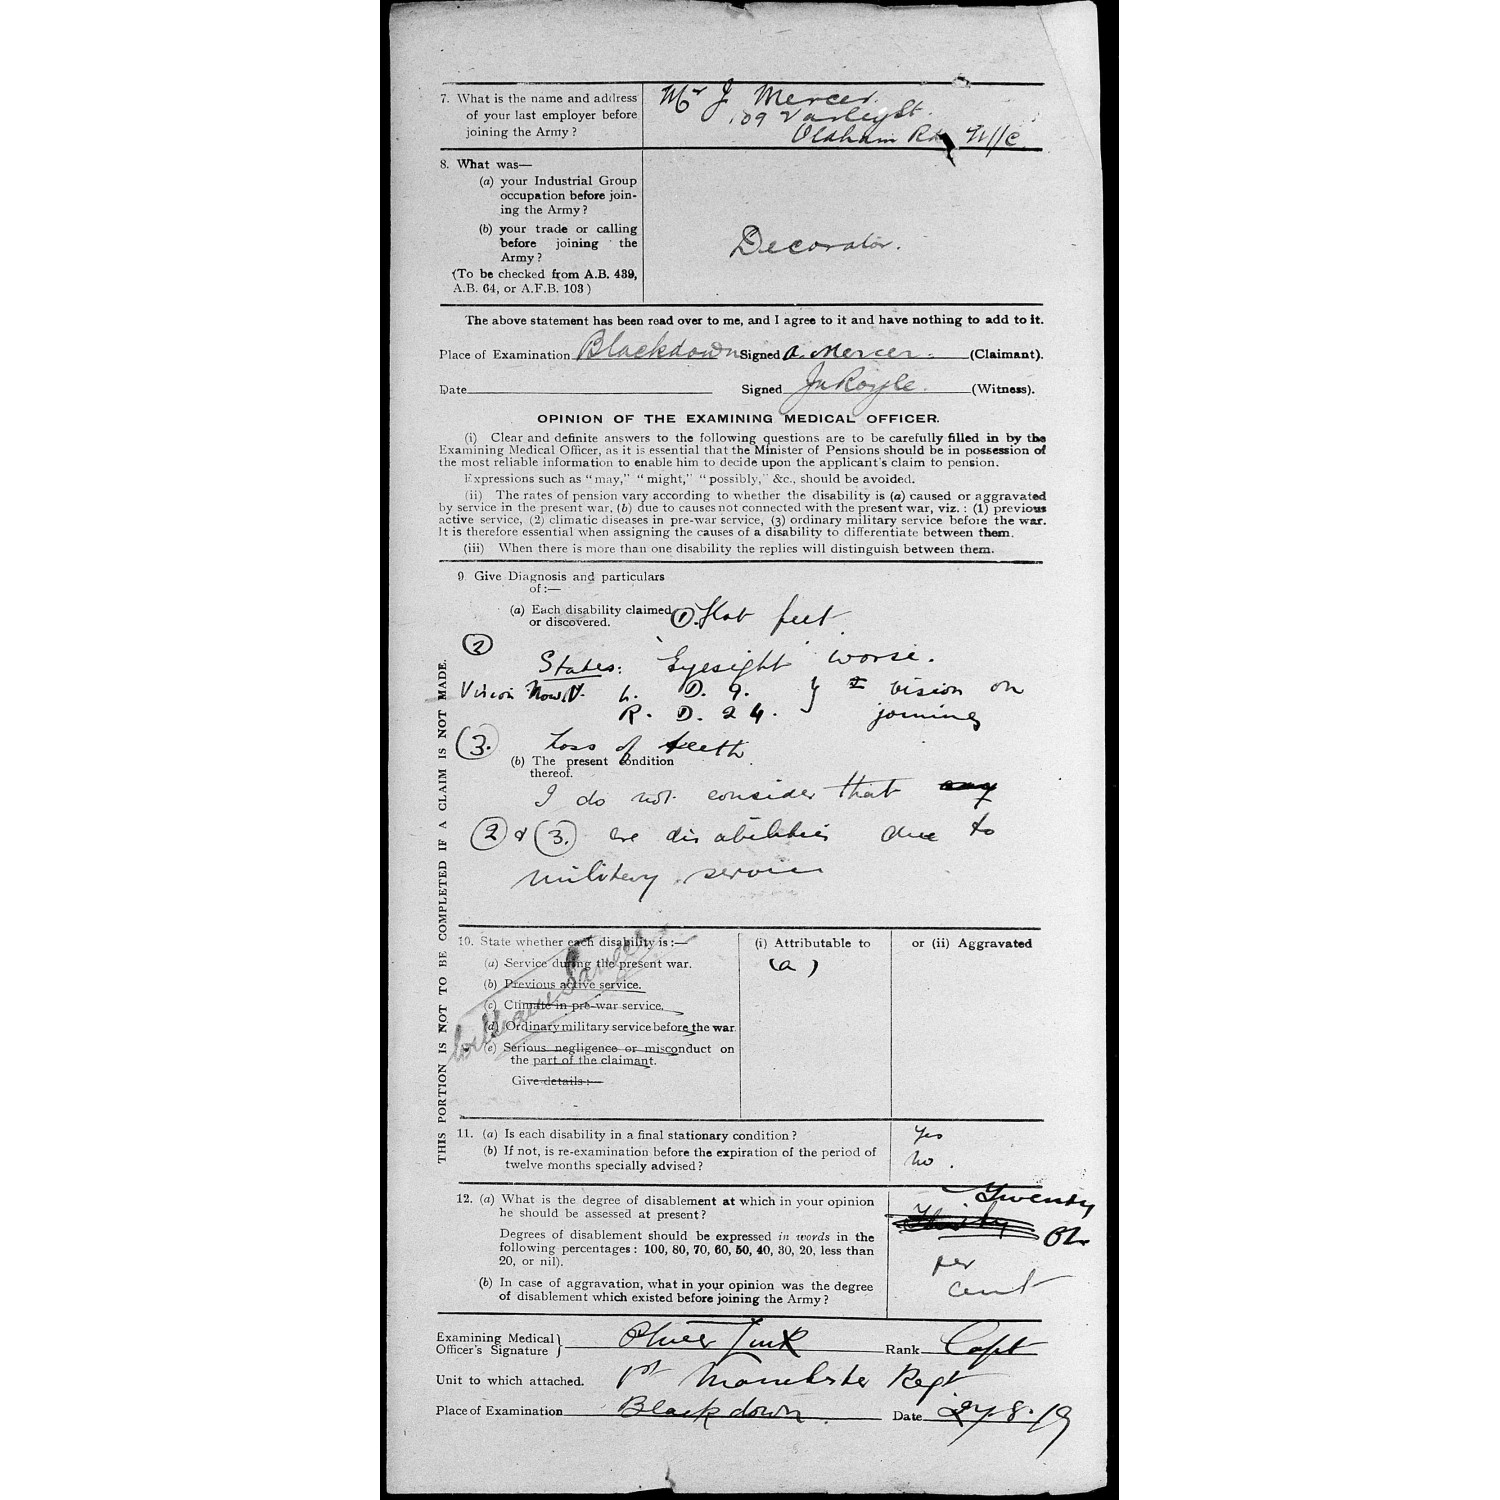 7. What is the name and address
of your last employer before
joining the Army?
Mr J Mercer.
109 Varley St.
Oldham Rd, M/c
8. What was—
(a) your Industrial Group
occupation before join-
ing the Army?
(b) your trade or calling
before joining the
Army?
(To be checked from A.B. 439,
A.B. 64, or A.F.B. 103)
Decorator.
The above statement has been read over to me, and I agree to it and have nothing to add to it.
Place of Examination Blackdown Signed A. Mercer. (Claimant).
Date Signed Royle. (Witness).
OPINION OF THE EXAMINING MEDICAL OFFICER.
(i) Clear and definite answers to the following questions are to be carefully filled in by the
Examining Medical Officer, as it is essential that the Minister of Pensions should be in possession of
the most reliable information to enable him to decide upon the applicant's claim to pension.
Expressions such as "may," "might," "possibly," &c., should be avoided.
(ii) The rates of pension vary according to whether the disability is (a) caused or aggravated
by service in the present war, (b) due to causes not connected with the present war, viz.: (1) previous
active service, (2) climatic diseases in pre-war service, (3) ordinary military service before the war.
It is therefore essential when assigning the causes of a disability to differentiate between them.
(iii) When there is more than one disability the replies will distinguish between them.
THIS PORTION IS NOT TO BE COMPLETED IF A CLAIM IS NOT MADE.
9 Give Diagnosis and particulars
of:—
(a) Each disability claimed
or discovered.
(1). Flat feet.
(2)
States: Eyesight worse.
Vision Now. V. L. D. 9. } vision on
R. D. 24. joining
(3. Loss of teeth.
(b) The present condition
thereof.
I do not consider that any
(2) & (3.) are disabilities due to
military service
10. State whether each disability is:—
(a) Service during the present war.
(b) Previous active service.
(c) Climate in pre-war service.
(d) Ordinary military service before the war.
(e) Serious negligence or misconduct on
the part of the claimant.
Give details:—
(i) Attributable to
(a)
or (ii) Aggravated
11. (a) Is each disability in a final stationary condition? Yes
(b) If not, is re-examination before the expiration of the period of
twelve months specially advised? No.
12. (a) What is the degree of disablement at which in your opinion
he should be assessed at present?
Twenty
Thirty OL
per
cent
Degrees of disablement should be expressed in words in the
following percentages: 100, 80, 70, 60, 50, 40, 30, 20, less than
20, or nil).
(b) In case of aggravation, what in your opinion was the degree
of disablement which existed before joining the Army?
Examining Medical
Officer's Signature } Oliver Rank Capt
Unit to which attached. 1st Manchester Regt
Place of Examination Blackdown. Date 27.8.19